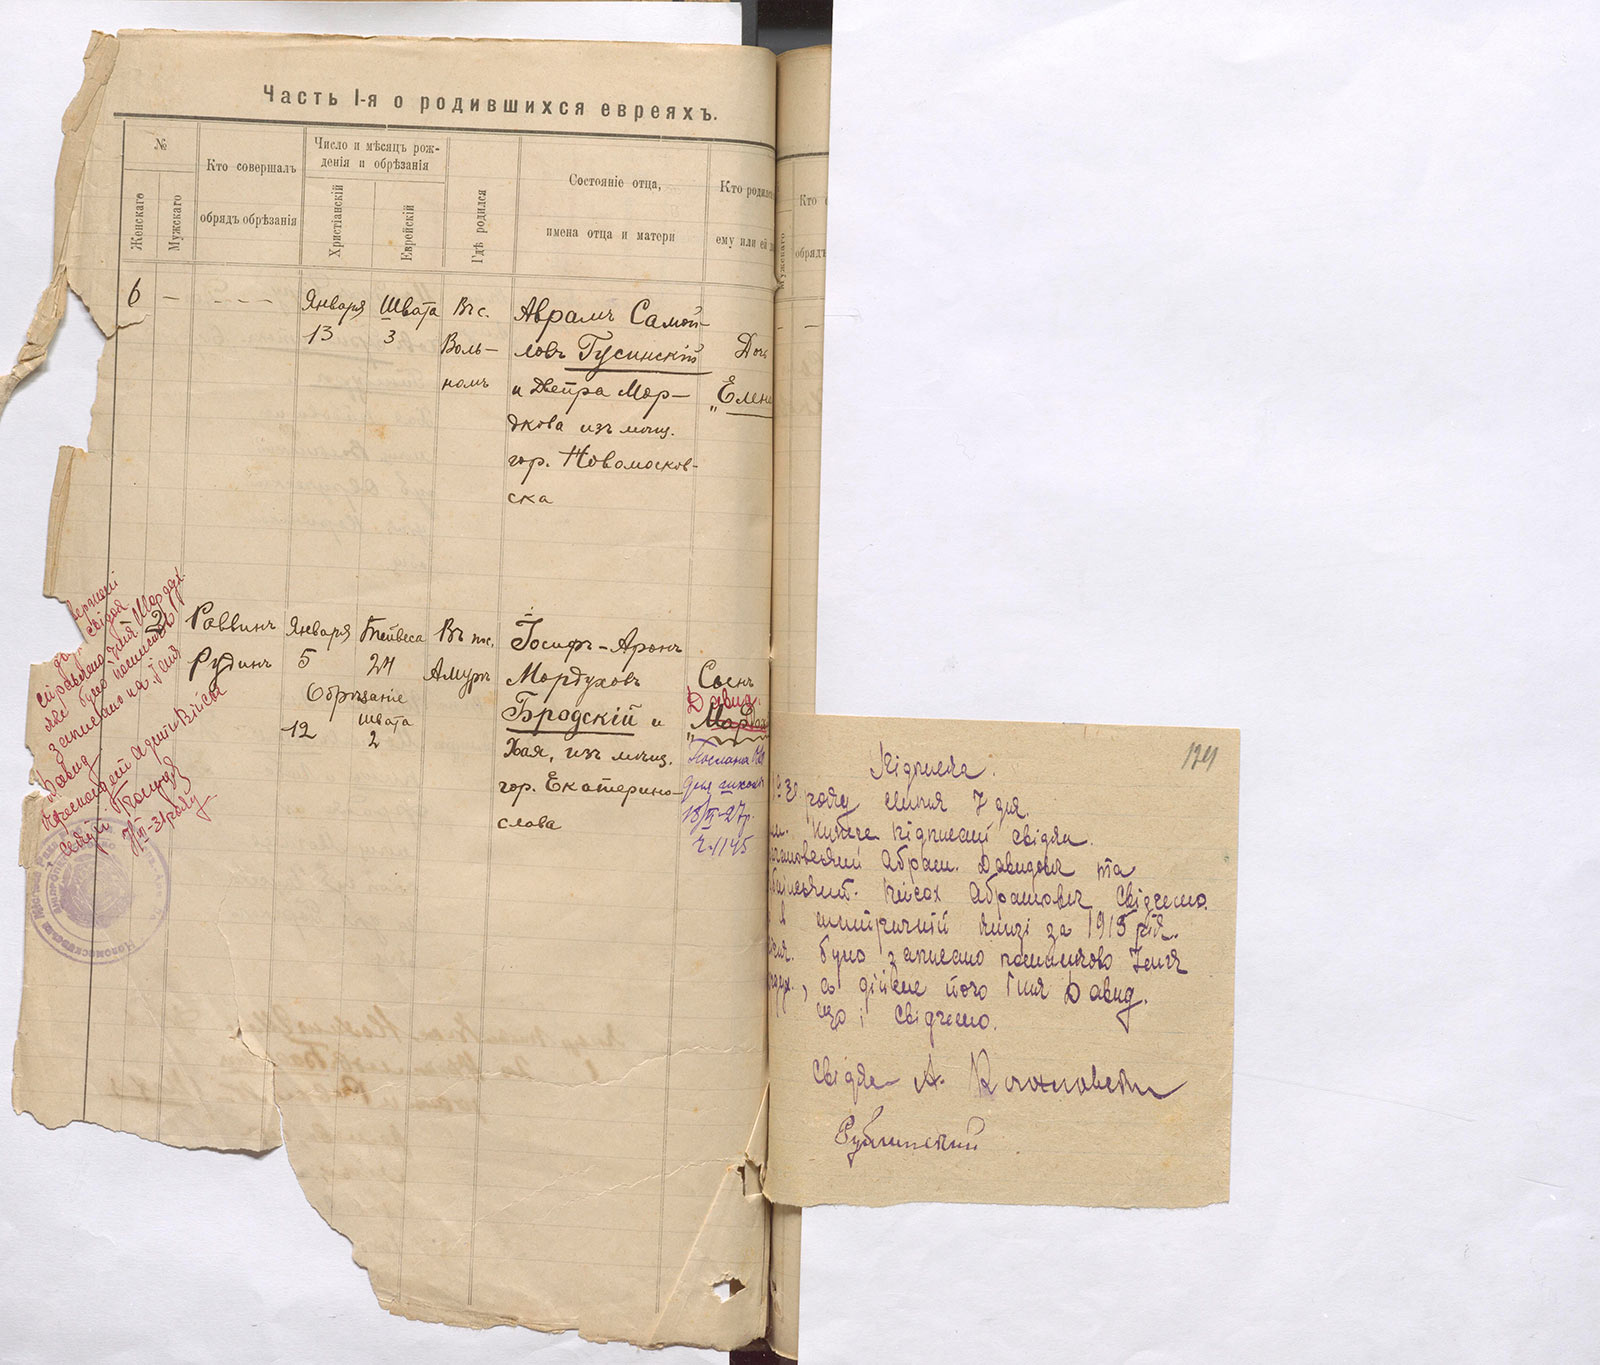 Часть I-я о родившихся евреяхъ.
№
Женскаго
Мужскаго
Кто совершалъ
обрядъ обрѣзанія
Число и мѣсяцъ рож-
денія и обрѣзанія
Христіанскій
Еврейскій
Гдѣ родился
Состояніе отца,
имена отца и матери
Кто родился
ему или ей
Кто
обрядъ
6 — - - - -
Января
13
Швата
3
Въ с.
Воль-
номъ
Аврамъ Самой-
ловъ Гусинскій
и Двейра Мор-
дкова изъ мѣщ.
гор. Новомосков-
ска
Дочь
"Елена
2
Раввинъ
Рудинъ
Января
5
Обрѣзаніе
12
Тейвеса
24
Швата
2
Въ пос.
Амуръ
Іосифъ-Аронъ
Мордуховъ
Бродскій и
Хая, изъ мѣщ.
гор. Екатерино-
слова
Сынъ
Давид
Послана
для
18/II-27р.
ч. 1145
свідків
справлено імя Мордух
яке було помилково
записано на імя
Давид
7/VI-31 року
124
Підписка.
року липня 7 дня.
Нижче підписані свідки
Абрам. Давидович та
Пейсах Абрамович Свідчемо
в метричній книзі за 1915 рік.
було записано помилково Імя
, а дійсне його Імя Давид.
що і Свідчемо.
Свідки А.
Рублинський